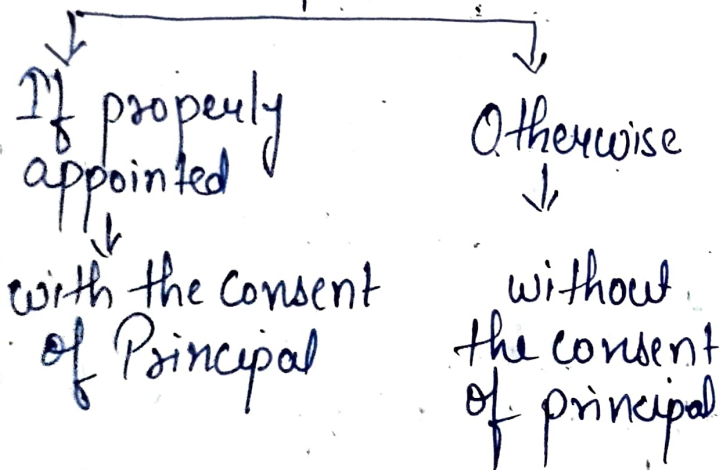 If properly
appointed
with the consent
of Principal
Otherwise
without
the consent
of principal